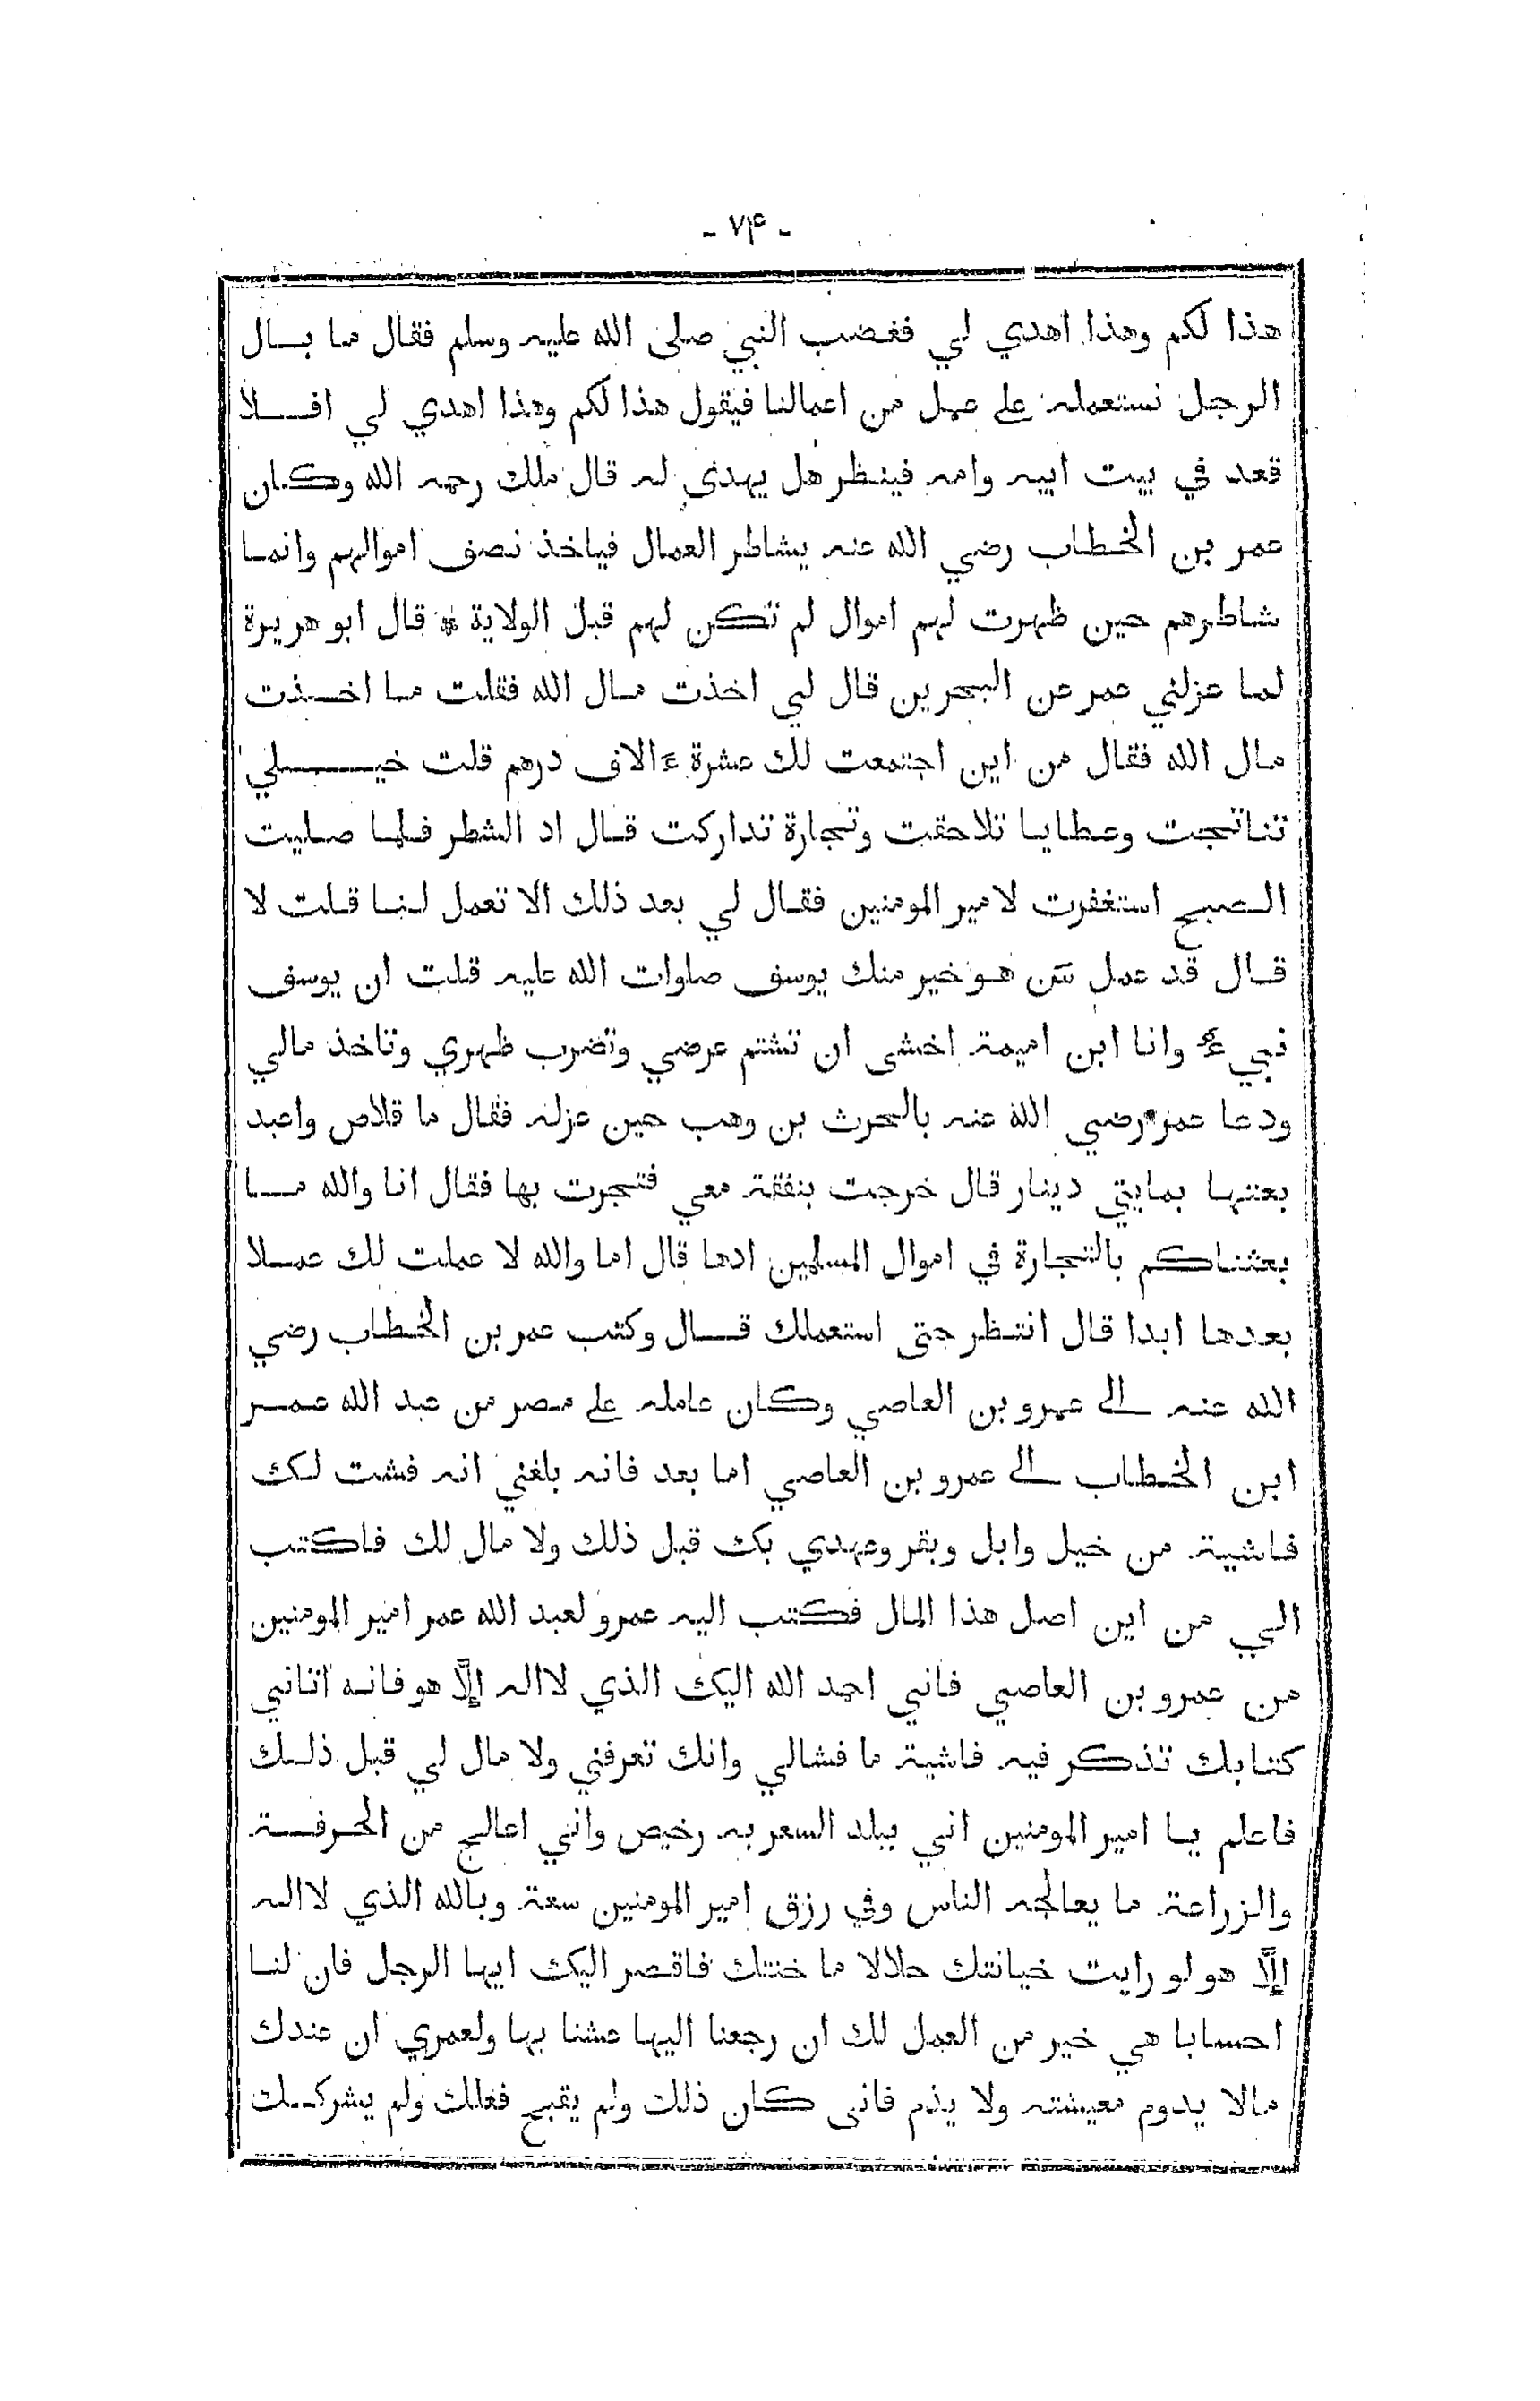 - ٧۴ -
هذا لكم وهذا اهدي لي فغضب النبي صلى الله عليه وسلم فقال ما بال
الرجل نستعمله على عمل من اعمالنا فيقول هذا لكم وهذا اهدي لي افلا
قعد في بيت ابيه وامه فينظر هل يهدى له قال ملك رحمه الله وكان
عمر بن الخطاب رضي الله عنه يشاطر العمال فياخذ نصف اموالهم وانما
شاطرهم حين ظهرت لهم اموال لم تكن لهم قبل الولاية * قال ابو هريرة
لما عزلني عمر عن البحرين قال لي اخذت مال الله فقلت ما اخذت
مال الله فقال من اين اجتمعت لك عشرة ءالاف درهم قلت خيلي
تناتجت وعطايا تلاحقت وتجارة تداركت قال اد الشطر فلما صليت
الصبح استغفرت لامير المومنين فقال لي بعد ذلك الا تعمل لنا قلت لا
قال قد عمل من هو خير منك يوسف صلوات الله عليه قلت ان يوسف
نبي وانا ابن اميمة اخشى ان تشتم عرضي وتضرب ظهري وتاخذ مالي
ودعا عمر رضي الله عنه بالحرث بن وهب حين عزله فقال ما قلاص واعبد
بعتها بمايتي دينار قال خرجت بنفقة معي فتجرت بها فقال انا والله ما
بعثناكم بالتجارة في اموال المسلمين ادها قال اما والله لا عملت لك عملا
بعدها ابدا قال انتظر حتى استعملك قال وكتب عمر بن الخطاب رضي
الله عنه الى عمرو بن العاصي وكان عامله على مصر من عبد الله عمر
ابن الخطاب الى عمرو بن العاصي اما بعد فانه بلغني انه فشت لك
فاشية من خيل وابل وبقر وعهدي بك قبل ذلك ولا مال لك فاكتب
الي من اين اصل هذا المال فكتب اليه عمرو لعبد الله عمر امير المومنين
من عمرو بن العاصي فاني احمد الله اليك الذي لا اله إلَّا هو فانه اتاني
كتابك تذكر فيه فاشية ما فشالي وانك تعرفني ولا مال لي قبل ذلك
فاعلم يا امير المومنين اني ببلد السعر به رخيص واني اعالج من الحرفة
والزراعة ما يعالجه الناس وفي رزق امير المومنين سعة وبالله الذي لا اله
إلَّا هو لو رايت خيانتك حلالا ما خنتك فاقصر اليك ايها الرجل فان لنا
احسابا هي خير من العمل لك ان رجعنا اليها عشنا بها ولعمري ان عندك
مالا يدوم معيشته ولا يذم فانى كان ذلك ولم يقبح فعلك ولم يشركك